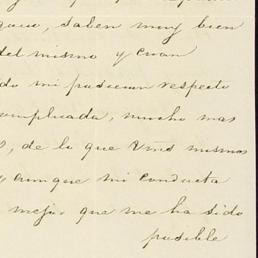 que, saben muy bien
del mismo y cuan
do mi posicion respecto
omplicada, mucho mas
, de lo que Vms mismos
aunque mi conducta
mejor que me ha sido
posible